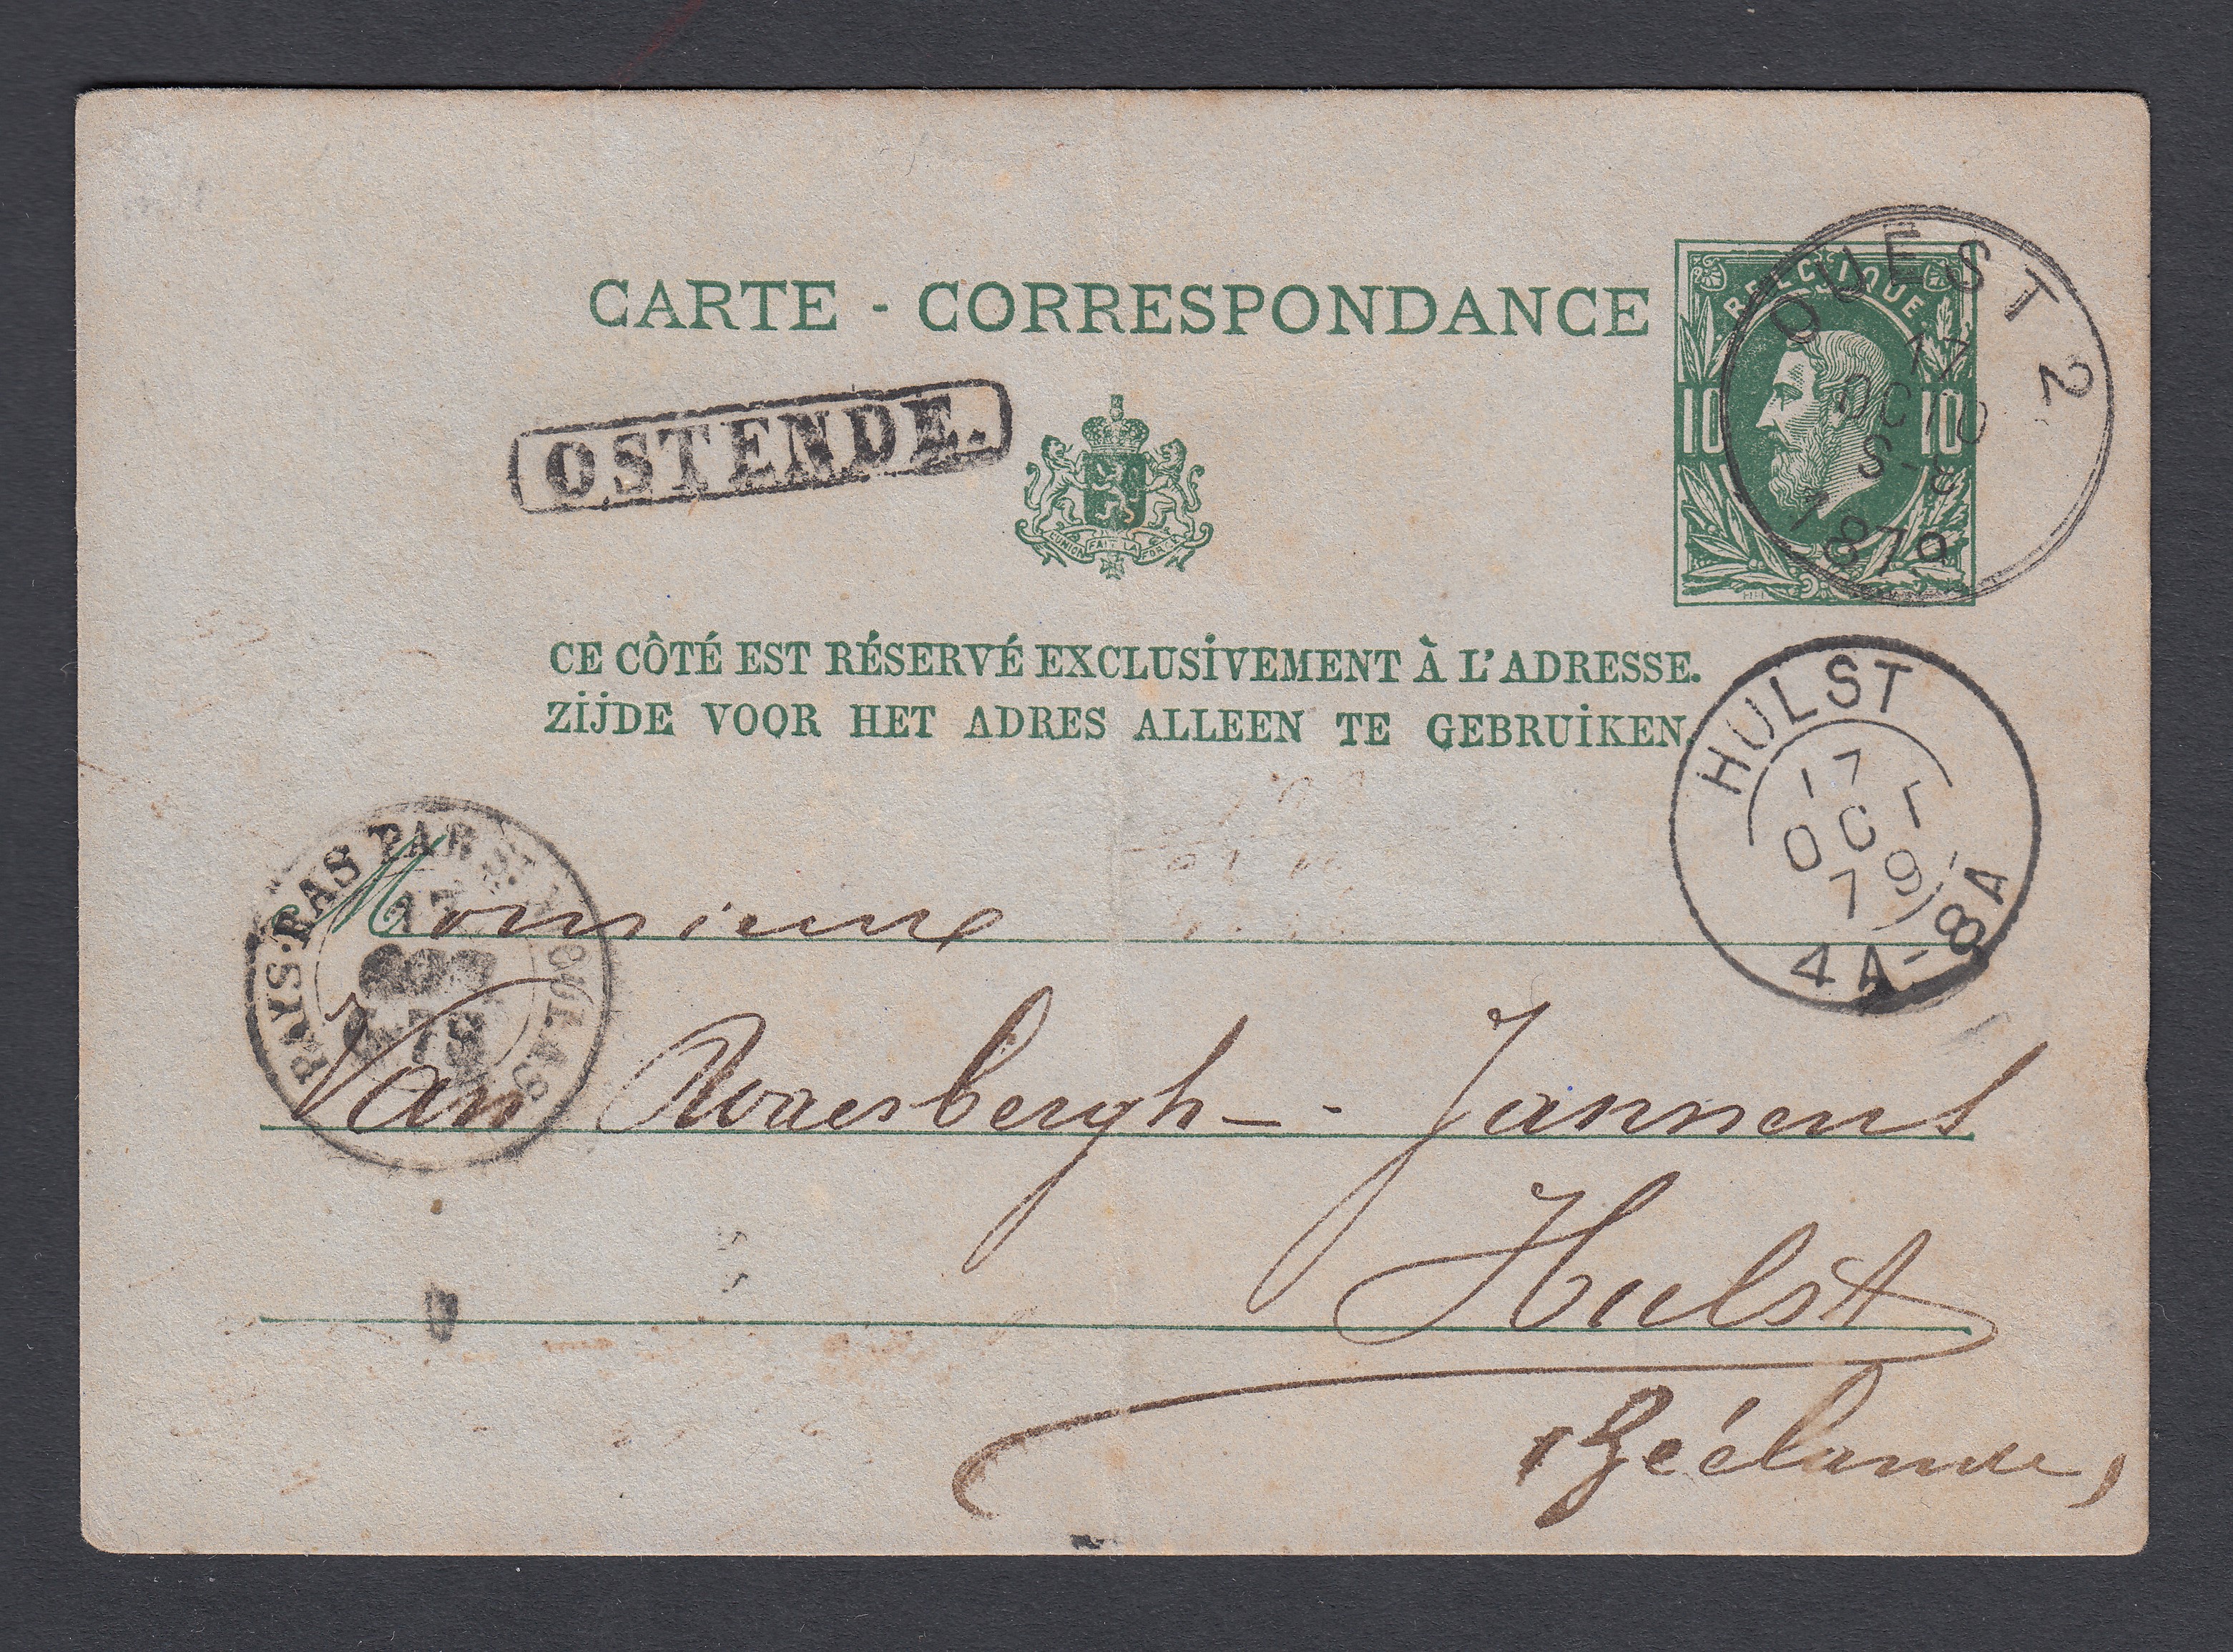 CARTE - CORRESPONDANCE
BELGIQUE
10 10
OUEST 2
17
OCT
1879
OSTENDE.
L'UNION FAIT LA FORCE
CE CÔTÉ EST RÉSERVÉ EXCLUSIVEMENT À L'ADRESSE.
ZIJDE VOOR HET ADRES ALLEEN TE GEBRUIKEN.
HULST
17
OCT
79
4A-8A
PAYS-BAS PAR ST NICOLAS
17
OCT
79
Monsieur
Van Waesbergh - Janssens
Hulst
(Zéélande)